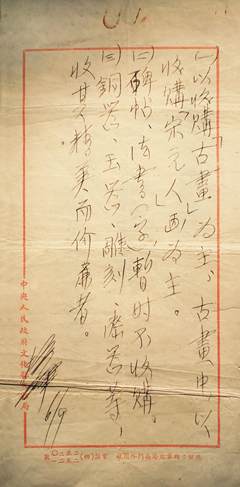 (一)以收購「古畫」為主、古畫中、以
收購「宋元人画」為主。
(二)碑帖、法書(字)、暫时不收購。
(三)銅器、玉器、雕刻、瓷器等，
收其精美而价廉者。
6/9
中央人民政府文化 局